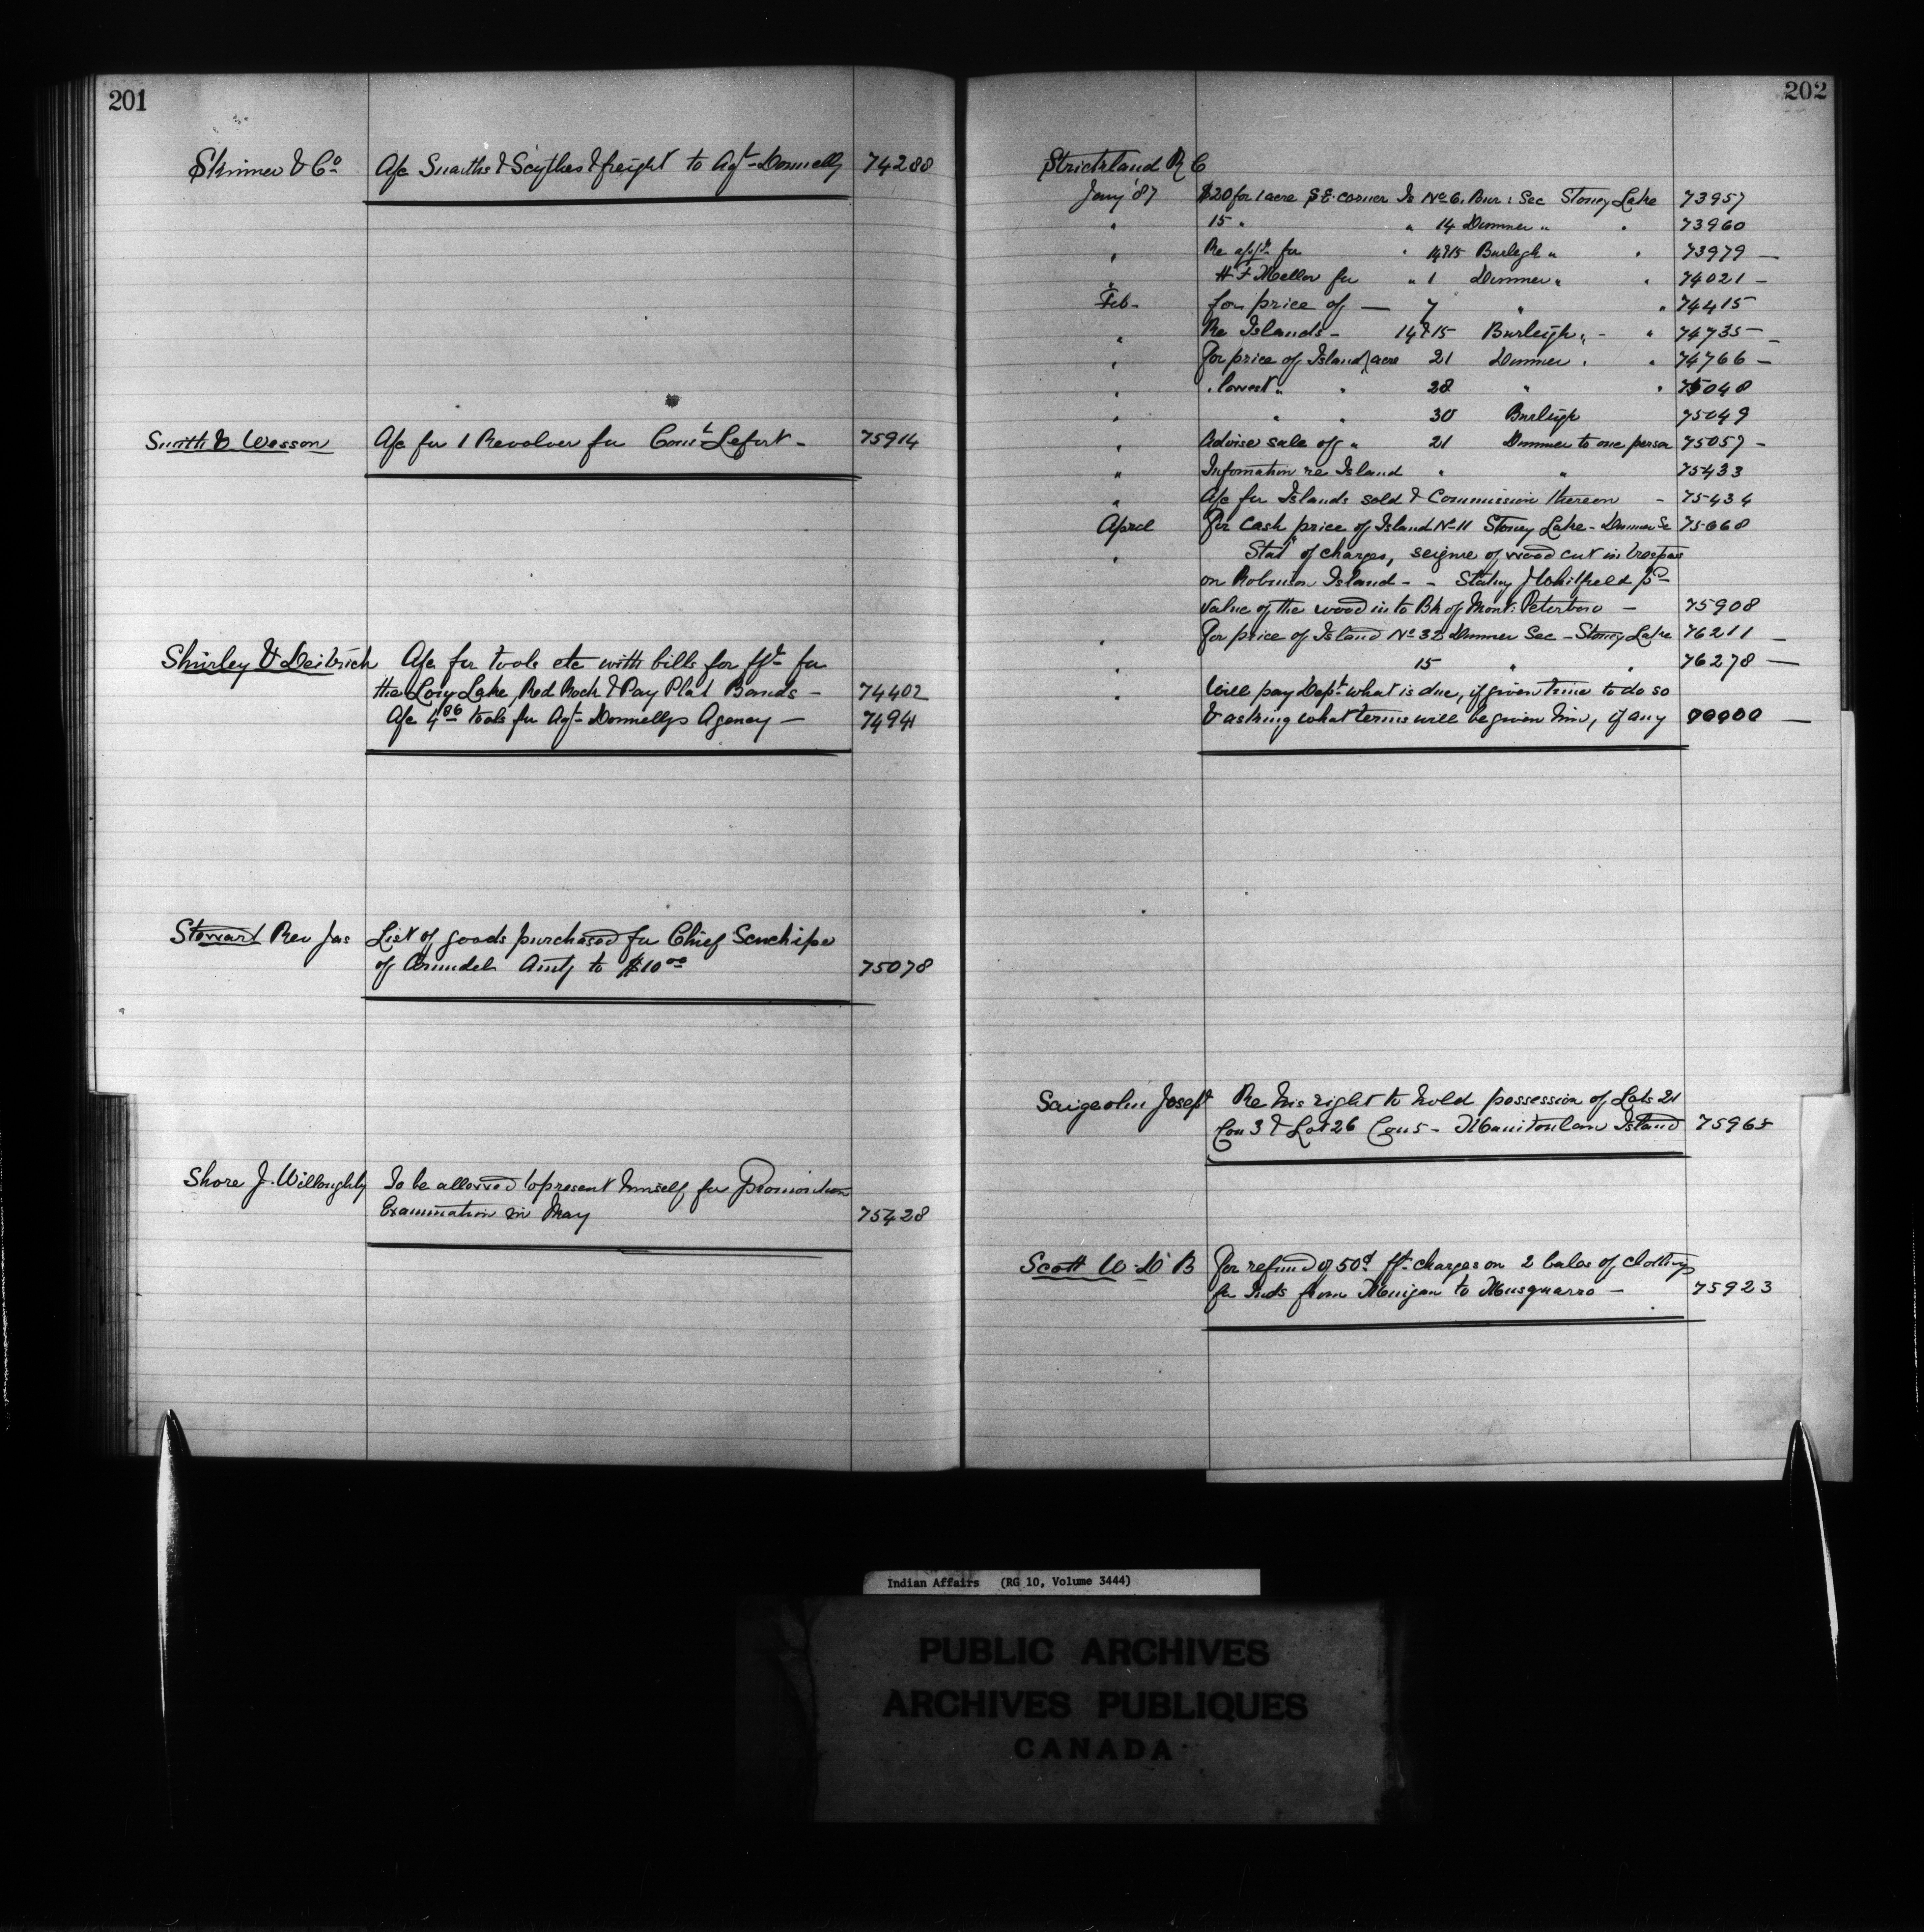 201
Skinner & Co. A/c Snaiths & Scythes & freight to Agt. Donnelly 74288
Smith & Wesson A/c for 1 Revolver for Const. Lefort - 75914
Shirley & Deitrich A/c for tools etc with bills for fft. for
the Long Lake, Red Rock & Pay Plat Bands - 74402
A/c 4 86 tools for Agt. Donnellys Agency - 74941
Stewart Rev Jas List of goods purchased for Chief
of Arundel Amtg to $10 00 75078
Shore J. Willoughby To be allowed to present himself for Promotion
Examination in May 75428
202
Strickland R C
Jany '87 $20 for 1 acre S.E. corner Is No. 6. Bur: Sec Stoney Lake 73957
" 15 " " 14 Dummer " " 73960
" Re appn. for " 14 & 15 Burleigh " " 73979 -
" H F Mellor for " 1 Dummer " " 74021 -
Feb - for price of - 7 " " 74415
" Re Islands - 14 & 15 Burleigh " - " 74735 -
" For price of Island acre 21 Dummer " " 74766 -
" " lowest " " 28 " " 75048
" " " 30 Burleigh 75049
" Advise sale of " 21 Dummer to one person 75057 -
" Infomation re Island " " 75433
" A/c for Islands sold & Commission thereon - 75434
April For Cash price of Island No. 11 Stoney Lake - Dummer Se 75668
" Stat. of charges, seizure of wood cut in trespass
on Robinson Island - - Stating J Whitfield pd.
value of the wood into Bk of Mont: Peterboro - 75908
" For price of Island No. 32 Dummer Sec - Stoney Lake 76211 -
" 15 " " 76278 -
" Will pay Dept. what is due, if given time to do so
& asking what terms will be given him, if any -
Joseph Re his right to hold possession of Lots 21
Con 3 & Lot 26 Con 5 - Manitoulin Island 75965
Scott W. D. B For refund of 50¢ ft. charges on 2 bales of clothing
for Inds from Mingan to Musquarro - 75923
Indian Affairs (RG 10, Volume 3444)
PUBLIC ARCHIVES
ARCHIVES PUBLIQUES
CANADA